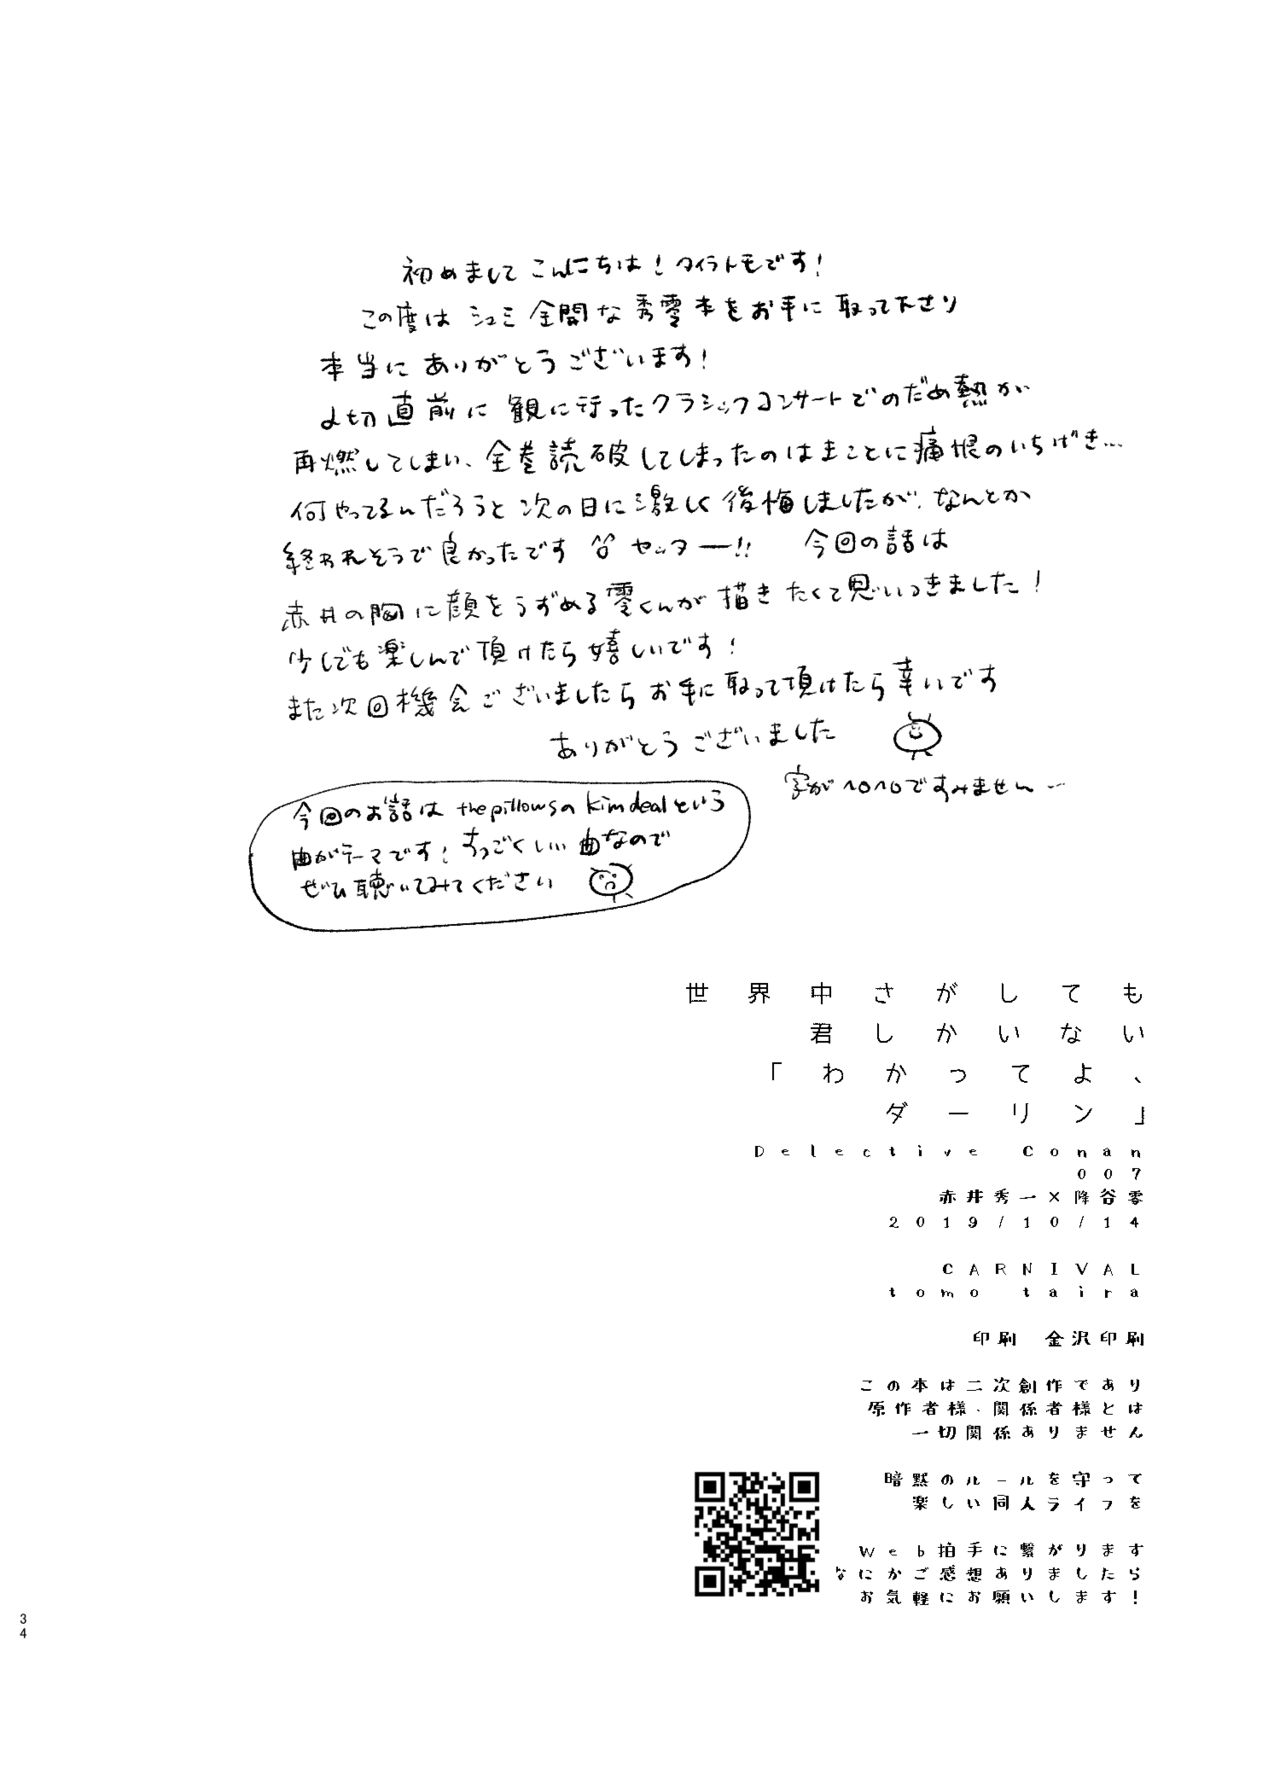 初めまして こんにちは！タイラトモです！
この度は シュミ全開な秀零本をお手に取って下さり
本当に ありがとうございます！
〆切直前に 観に行ったクラシックコンサートでのだめ熱が
再燃してしまい、全巻読破してしまったのはまことに痛恨のいちげき…
何やってるんだろうと次の日に激しく後悔しましたが、なんとか
終われそうで良かったです ヤッター!! 今回の話は
赤井の胸に顔をうずめる零くんが描きたくて思いつきました！
少しでも楽しんで頂けたら嬉しいです！
また次回機会ございましたらお手に取って頂けたら幸いです
ありがとうございました
字がヘロヘロですみません…
今回のお話は the pillowsの kim dealという
曲がテーマです！すっごくいい曲なので
ぜひ聴いてみてください
世界中さがしても
君しかいない
「わかってよ、
ダーリン」
Detective Conan
007
赤井秀一×降谷零
2019/10/14
CARNIVAL
tomo taira
印刷 金沢印刷
この本は二次創作であり
原作者様、関係者様とは
一切関係ありません
暗黙のルールを守って
楽しい同人ライフを
Web拍手に繋がります
なにかご感想ありましたら
お気軽にお願いします！
34